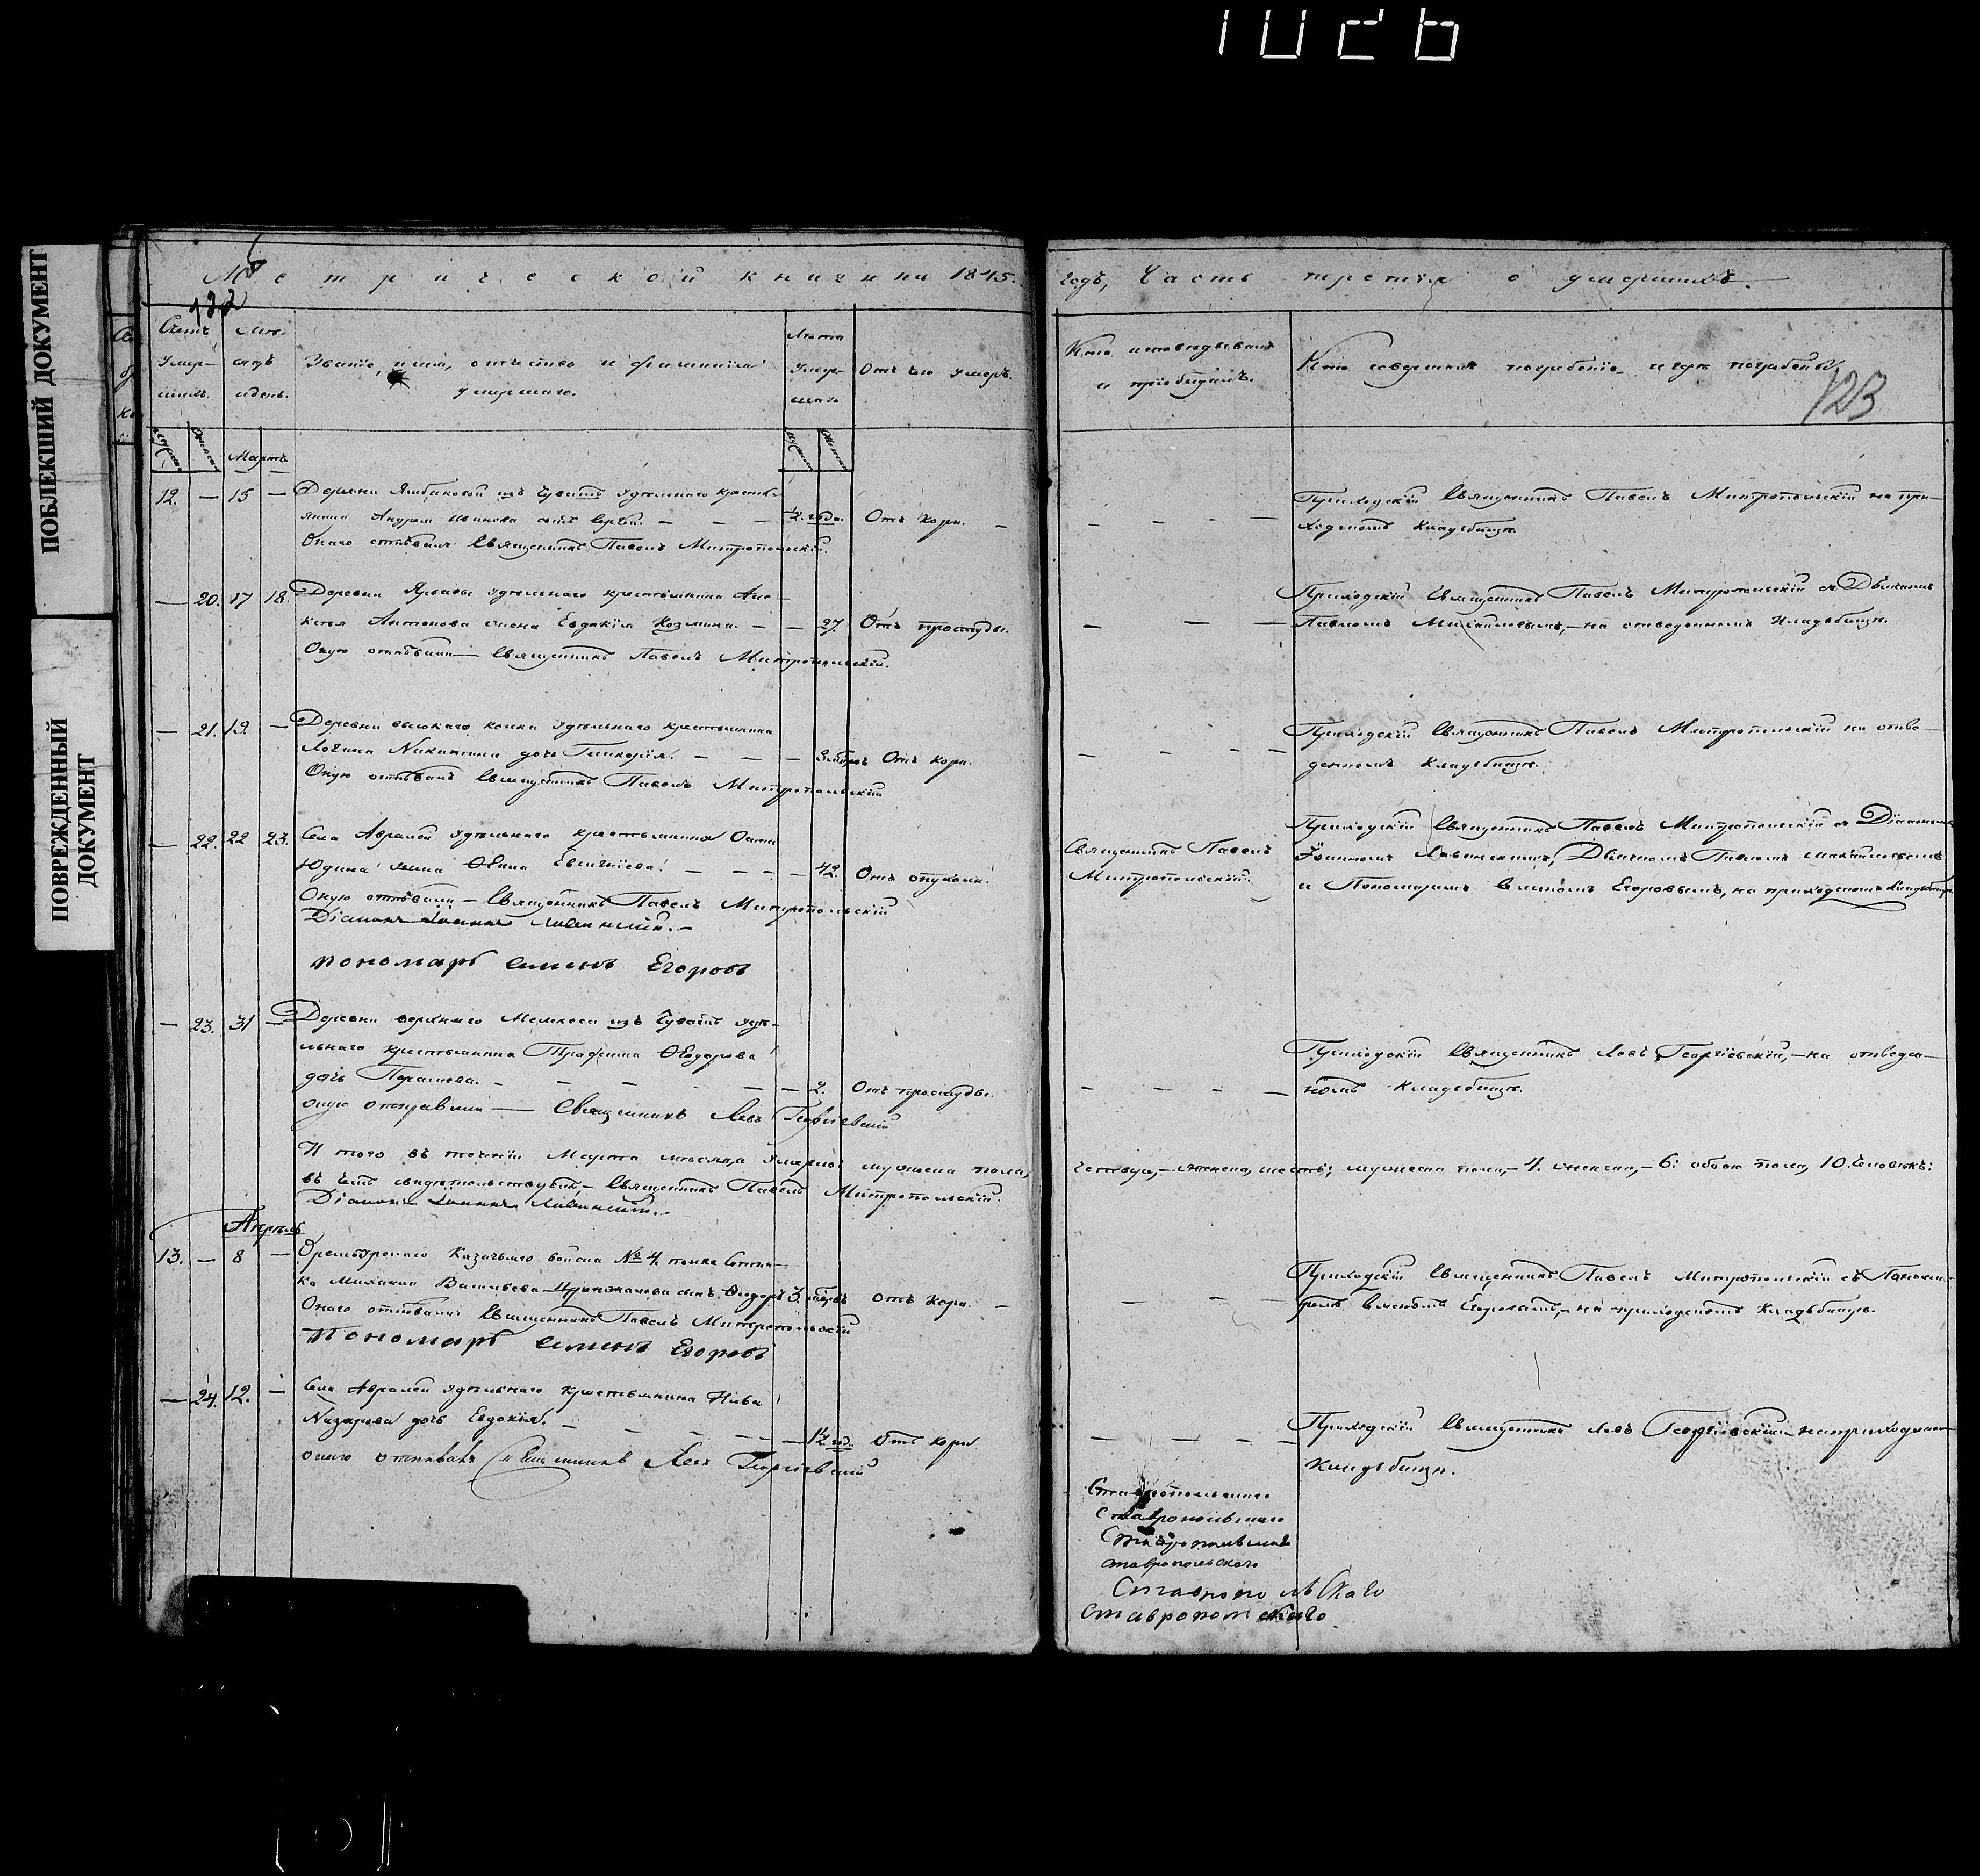 ПОБЛЕКШИЙ ДОКУМЕНТ
ПОВРЕЖДЕННЫЙ
ДОКУМЕНТ
Метрической книги на 1845.
122
Счетъ Умер- шихъ.
Мѣ- сяцъ и день.
Званіе, имя, отчество и фамилія
умершаго.
Лѣта Умер- шаго
Отъ чего умеръ.
Мартъ
12. — 15 — Деревни изъ Чувашъ Удѣльнаго кресть-
янина Андрея Иванова сынъ Сергѣй. — — — 1/2. года. Отъ кори. —
Онаго отпѣвалъ Священникъ Павелъ Митропольскій.
— 20. 17 18. Деревни Удѣльнаго крестьянина
Антонова жена Евдокія Козмина. — — 27. Отъ простуды.
Оную отпѣвали — Священникъ Павелъ Митропольскій.
— 21. 19. — Деревни Высокаго колка Удѣльнаго крестьянина
Логина Никитина дочь Гликерія. — — — Отъ кори.
Оную отпѣвалъ Священникъ Павелъ Митропольскій
— 22. 22 23. Села Авралей Удѣльнаго крестьянина
Юдина жена Ѳекла — — — — 42. Отъ опухоли.
Оную отпѣвали — Священникъ Павелъ Митропольскій
Діаконъ Іоаннъ
пономарь Семенъ Егоровъ
— 23. 31 — Деревни верхняго Мелекеса изъ Чувашъ удѣ-
льнаго крестьянина Трофима Ѳеодорова
дочь — — — — — 2. Отъ простуды.
оную отправили — Священникъ Левъ Георгіевскій
И того въ теченіи Марта мѣсяца Умерло мужеска пола,
въ чемъ свидѣтельствуемъ, — Священникъ Павелъ Митропольскій.
Діаконъ Іоаннъ
Апрѣль
13. — 8 — Оренбургскаго Казачьяго войска № 4. полка
Михаила Васильева сынъ Ѳеодоръ 3. Отъ кори. —
Онаго отпѣвали Священникъ Павелъ Митропольскій
Пономарь Семенъ Егоровъ
— 24. 12. — Села Авралей Удѣльнаго крестьянина
Назарова дочь Евдокія. — — — — 1/2 год. Отъ кори
оную отпѣвалъ Священникъ Левъ Георгіевскій
годъ, Часть третья о умершихъ.
Кто исповѣдывалъ
и пріобщалъ.
Кто совершалъ погребеніе и гдѣ погребены.
123
— — — — Приходскій Священникъ Павелъ Митропольскій на при-
ходскомъ кладбищѣ.
Приходскій Священникъ Павелъ Митропольскій съ Дьячкомъ
— — — Павломъ Михайловымъ, — на отведенномъ кладбищѣ.
Приходскій Священникъ Павелъ Митропольскій на отве-
— — — — денномъ кладбищѣ.
Приходскій Священникъ Павелъ Митропольскій съ Діакономъ
Священникъ Павелъ
Митропольскій.
Іоанномъ Дьячкомъ Павломъ Михайловымъ
и Пономаремъ Семеномъ Егоровымъ, на приходскомъ кладбищѣ
Приходскій Священникъ Левъ Георгіевскій, — на отведен-
— — — — номъ кладбищѣ.
четверо, — женска, шесть; мужеска пола, — 4. женска, — 6: обоего пола, 10. человѣкъ:
Приходскій Священникъ Павелъ Митропольскій съ Понома-
— — — ремъ Семеномъ Егоровымъ, — на приходскомъ кладбищѣ.
Приходскій Священникъ Левъ Георгіевскій — на приходскомъ
— — — — кладбищѣ.
Ставропольскаго
Ставропольскаго
Ставропольскаго
ставропольскаго
Ставропольскаго
Ставропольскаго